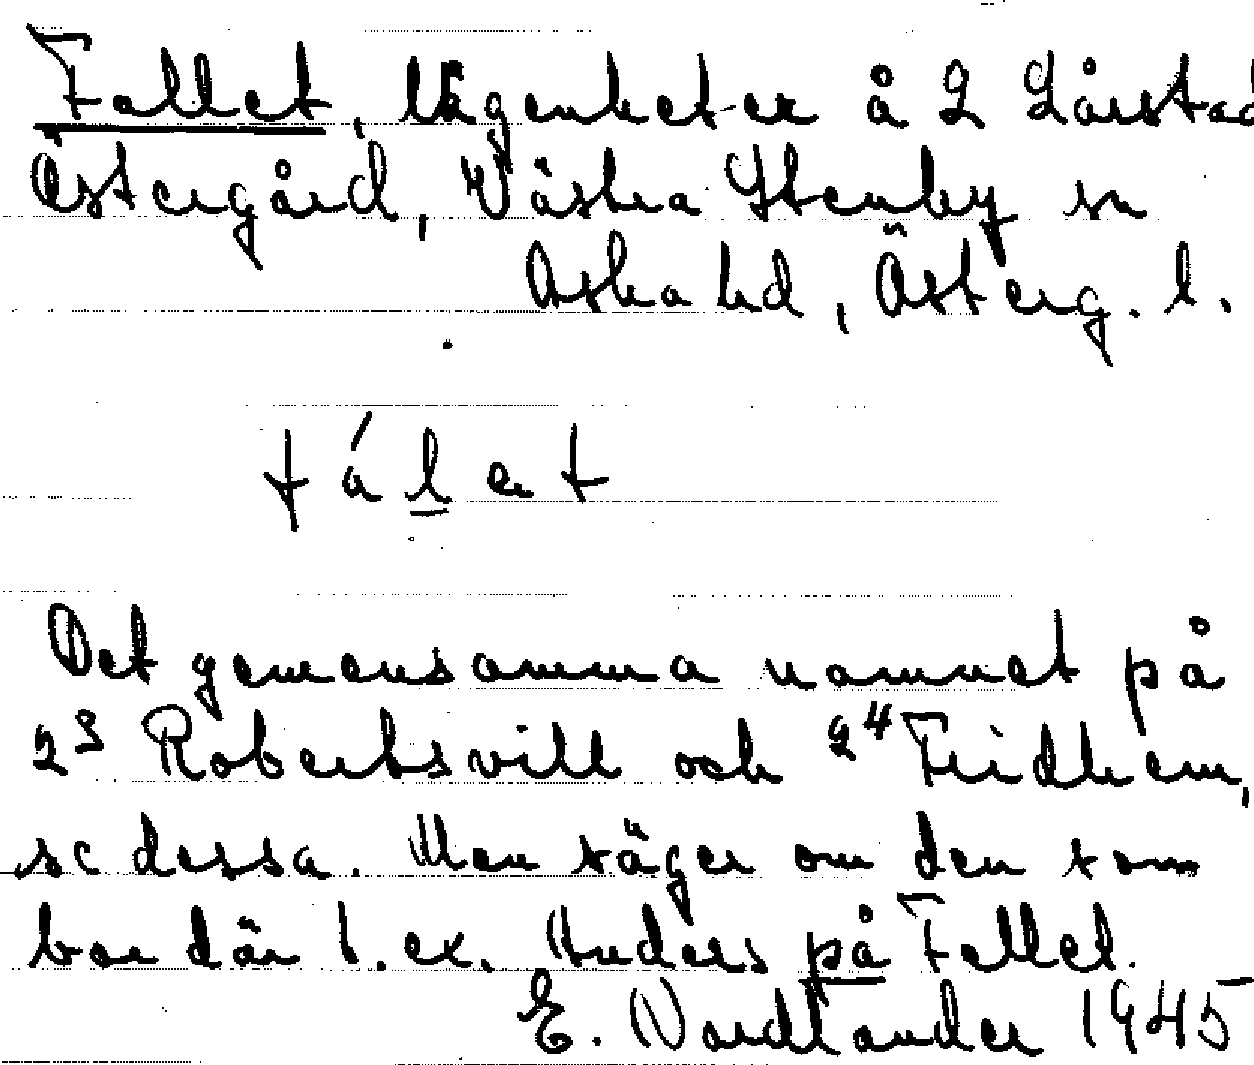 Fallet, lägenheter å 2 Lårstad
Östergård, Västra Stenby sn
Aska hd, Österg. l.
fálet
Det gemensamma namnet på
2³ Robertsvill och 2⁴ Fridhem,
se dessa. Man säger om den som
bor där t. ex. Anders på Fallet.
E. Nordlander 1945